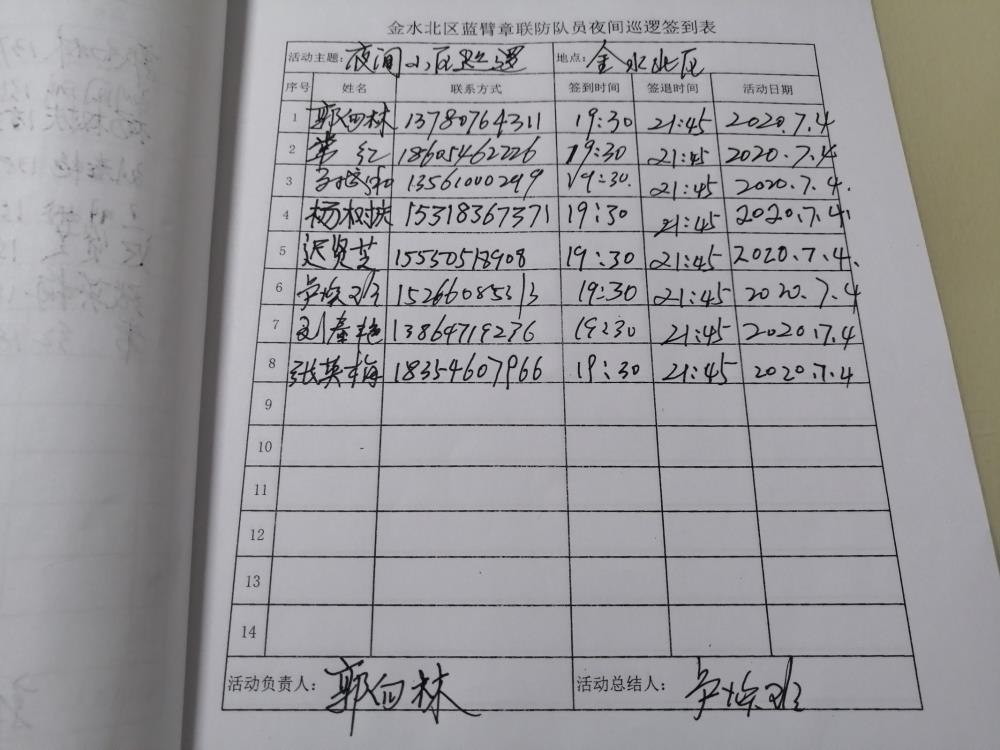 金水北区蓝臂章联防队员夜间巡逻签到表
活动主题：夜间小区巡逻 地点：金水北区
序号 姓名 联系方式 签到时间 签退时间 活动日期
1 郭向林 13780764311 19:30 21:45 2020.7.4
2 常红 18605462226 19:30 21:45 2020.7.4
3 13561000299 19:30. 21:45 2020.7.4.
4 杨树林 15318367371 19:30 21:45 2020.7.4.
5 迟贤芝 15550518908 19:30 21:45 2020.7.4.
6 15266085313 19:30 21:45 2020.7.4
7 刘 艳 13864719276 19:30 21:45 2020.7.4
8 张英梅 18354607966 19:30 21:45 2020.7.4
9
10
11
12
13
14
活动负责人：郭向林 活动总结人：